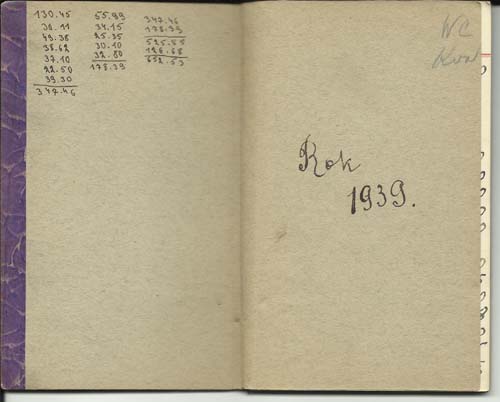 130.45
30.11
49.38
38.62
37.10
22.50
39.30
347.46
55.99
34.15
25.35
30.10
32.80
178.39
347.46
178.39
525.85
126.68
652.53
WC
Rok
1939.